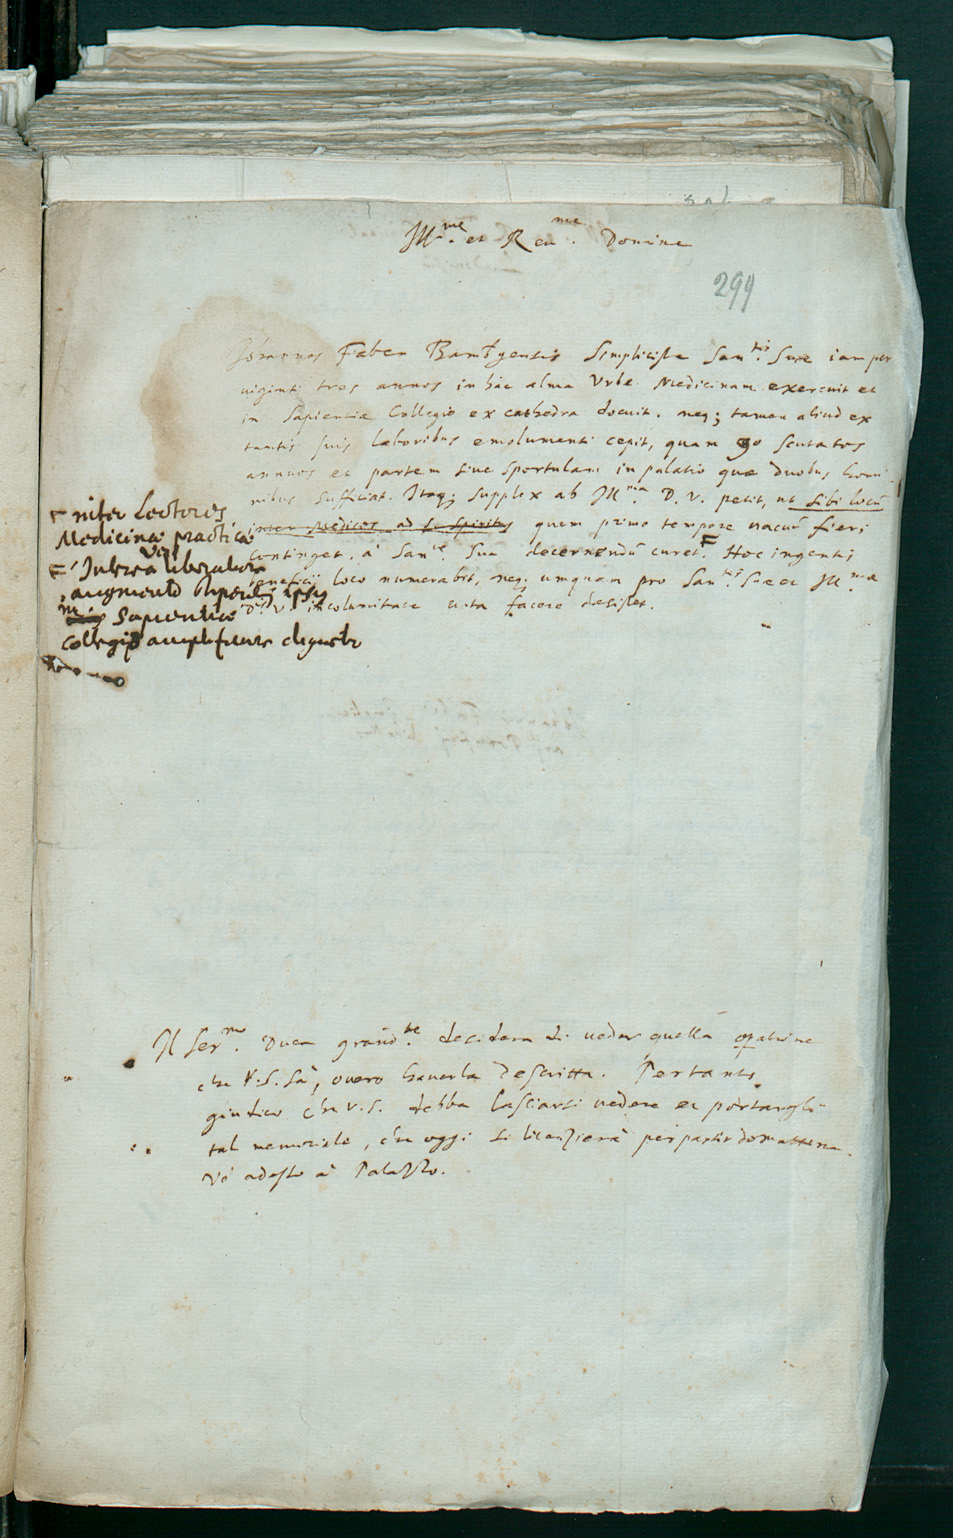 Ill.me et Reu.me Domine
299
Joannes Faber Bambergensis Simplicista San.tis Suæ iam per
uiginti tres annos in hac alma Vrbe Medicinam exercuit et
in Sapientiæ Collegio ex cathedra docuit. neq; tamen aliud ex
tantis suis laboribus emolumenti cepit, quam 90 scutatos
annuos et partem siue sportulam in palatio quæ duobus homi-
nibus sufficiat. Itaq; supplex ab Ill.ma D. V. petit, ut sibi locũ
inter Medicos ad S. Spiritus quem primo tempore uacuũ fieri
continget, à San.te Sua decernendũ curet. F Hoc ingentis
beneficij loco numerabit, neq; umquam pro San.tis Suæ et Ill.mæ
D. V. incolumitate uota facere desistet.
inter Lectores
Medicinæ practicæ
F Interea liberaliori
augmento stipendij ipsum
in Sapientiæ
collegio amplificare dignetur
Il Ser.mo Duca desidera di ueder quella
che V. S. sà, ouero hauerla descritta. Pertanto
giudico che V. S. debba lasciarsi uedere et portargli
tal memoriale, che oggi si licenzierà per partir domattina.
Vò adesso à Palazzo.